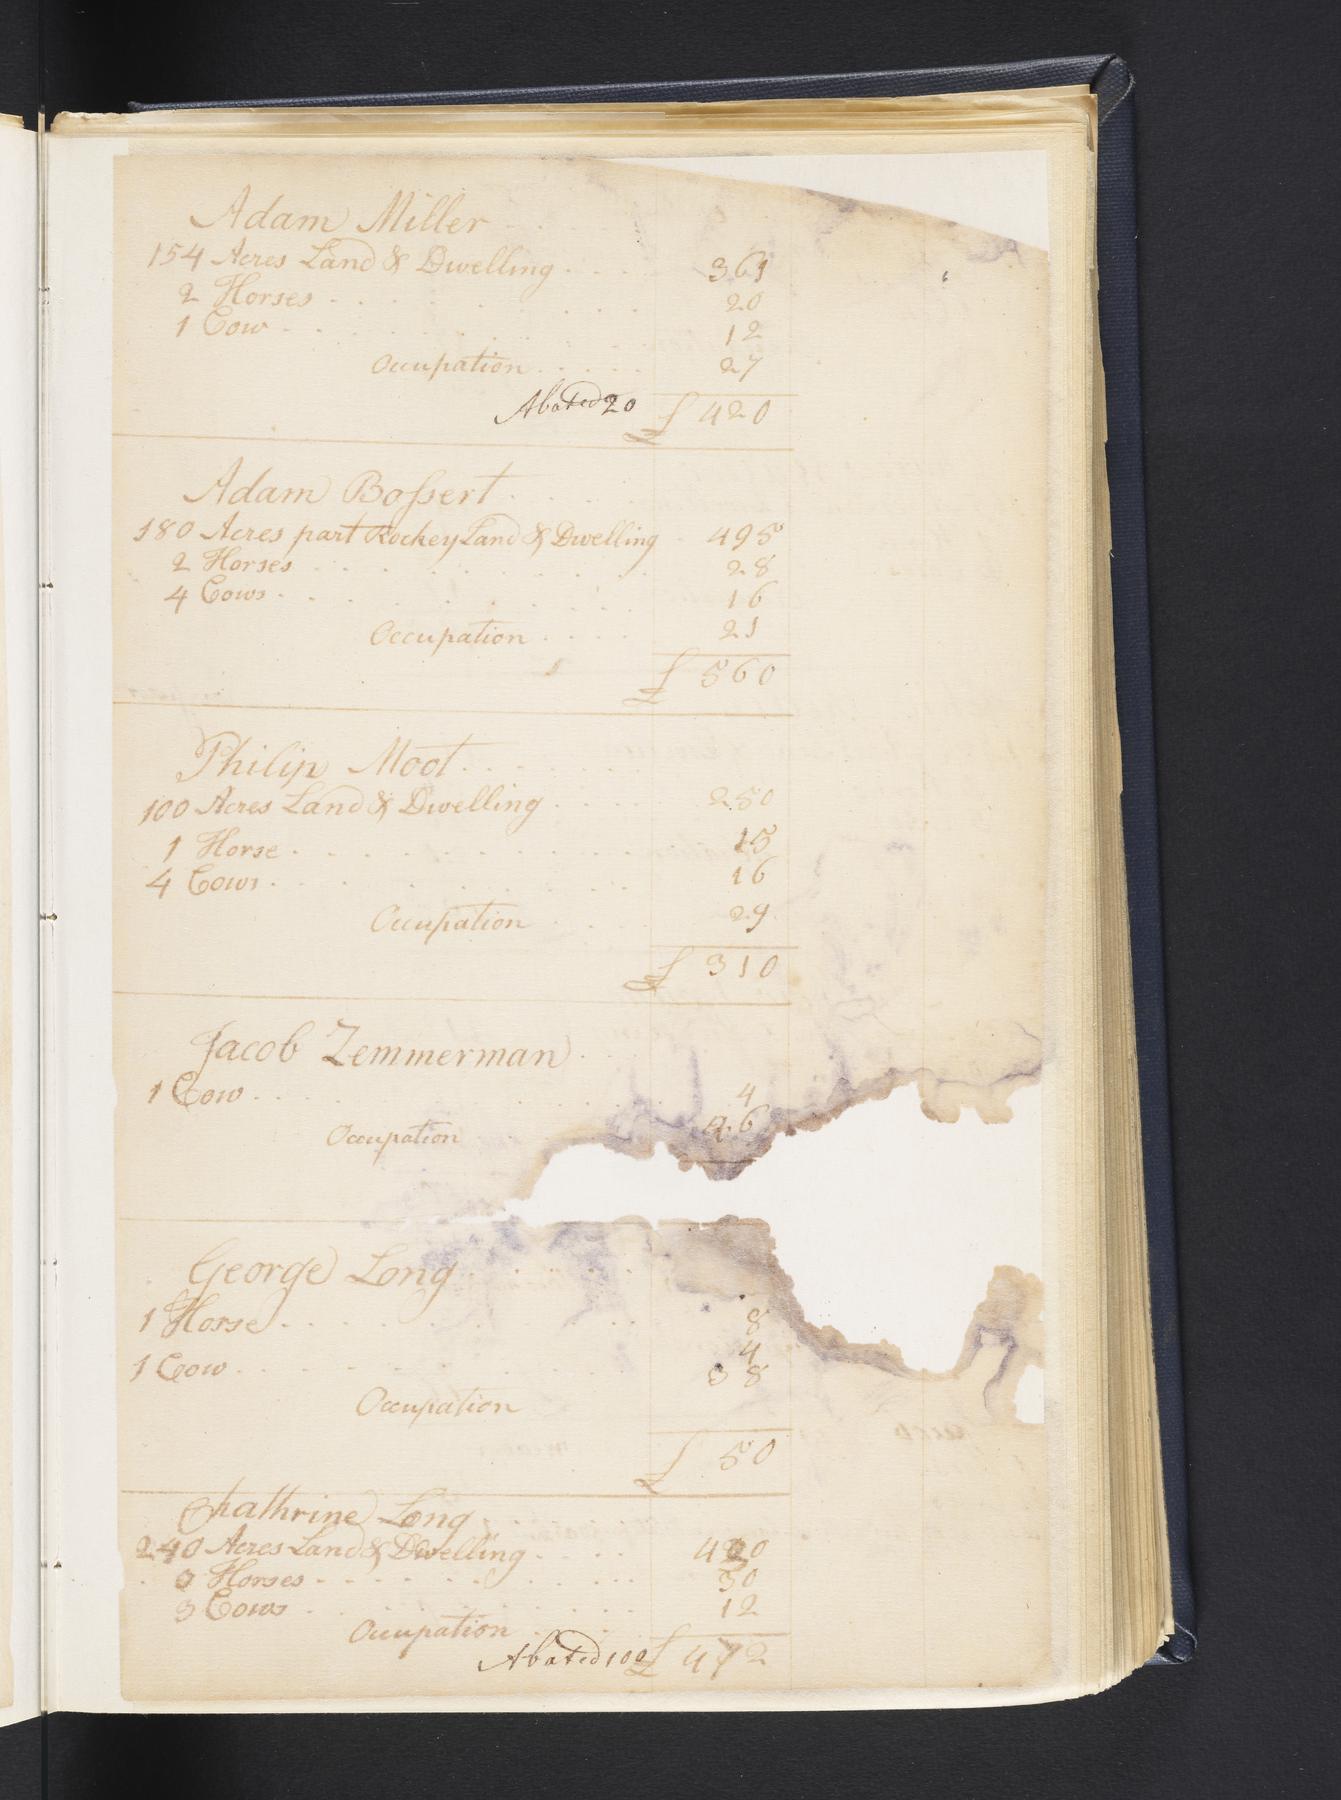 Adam Miller
154 Acres Land & Dwelling 361
2 Horses 20
1 Cow 12
Occupation 27
Abated 20 £ 420
Adam Boſsert
180 Acres part Rockey Land & Dwelling 495
2 Horses 28
4 Cows 16
Occupation 21
£ 560
Philip Moot
100 Acres Land & Dwelling 250
1 Horse 15
4 Cows 16
Occupation 29
£ 310
Jacob Zemmerman
1 Cow 4
Occupation 46
George Long
1 Horse 8
1 Cow 4
Occupation 38
£ 50
Chathrine Long
240 Acres Land & Dwelling
Horses 30
3 Cows 12
Occupation
Abated 100 £ 472